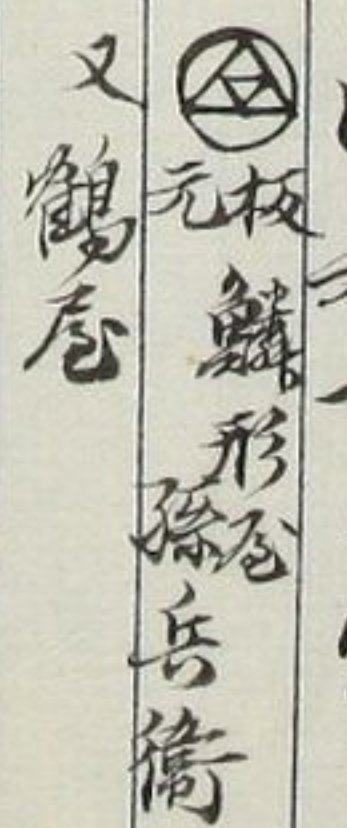 板元 鱗形屋孫兵衛
又 鶴屋